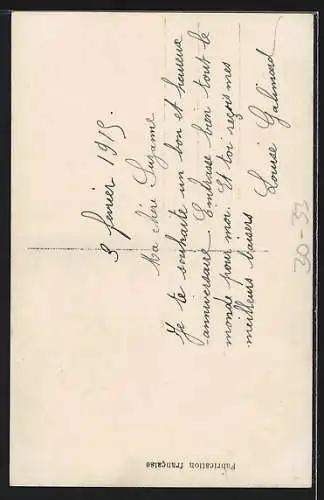 3 février 1915.
Ma chéri Suzanne
Je te souhaite un bon et heureux
anniversaire Embrasse bien tout le
monde pour moi. Et toi reçois mes
meilleurs baisers
Louise Galimard
30-35
Fabrication française